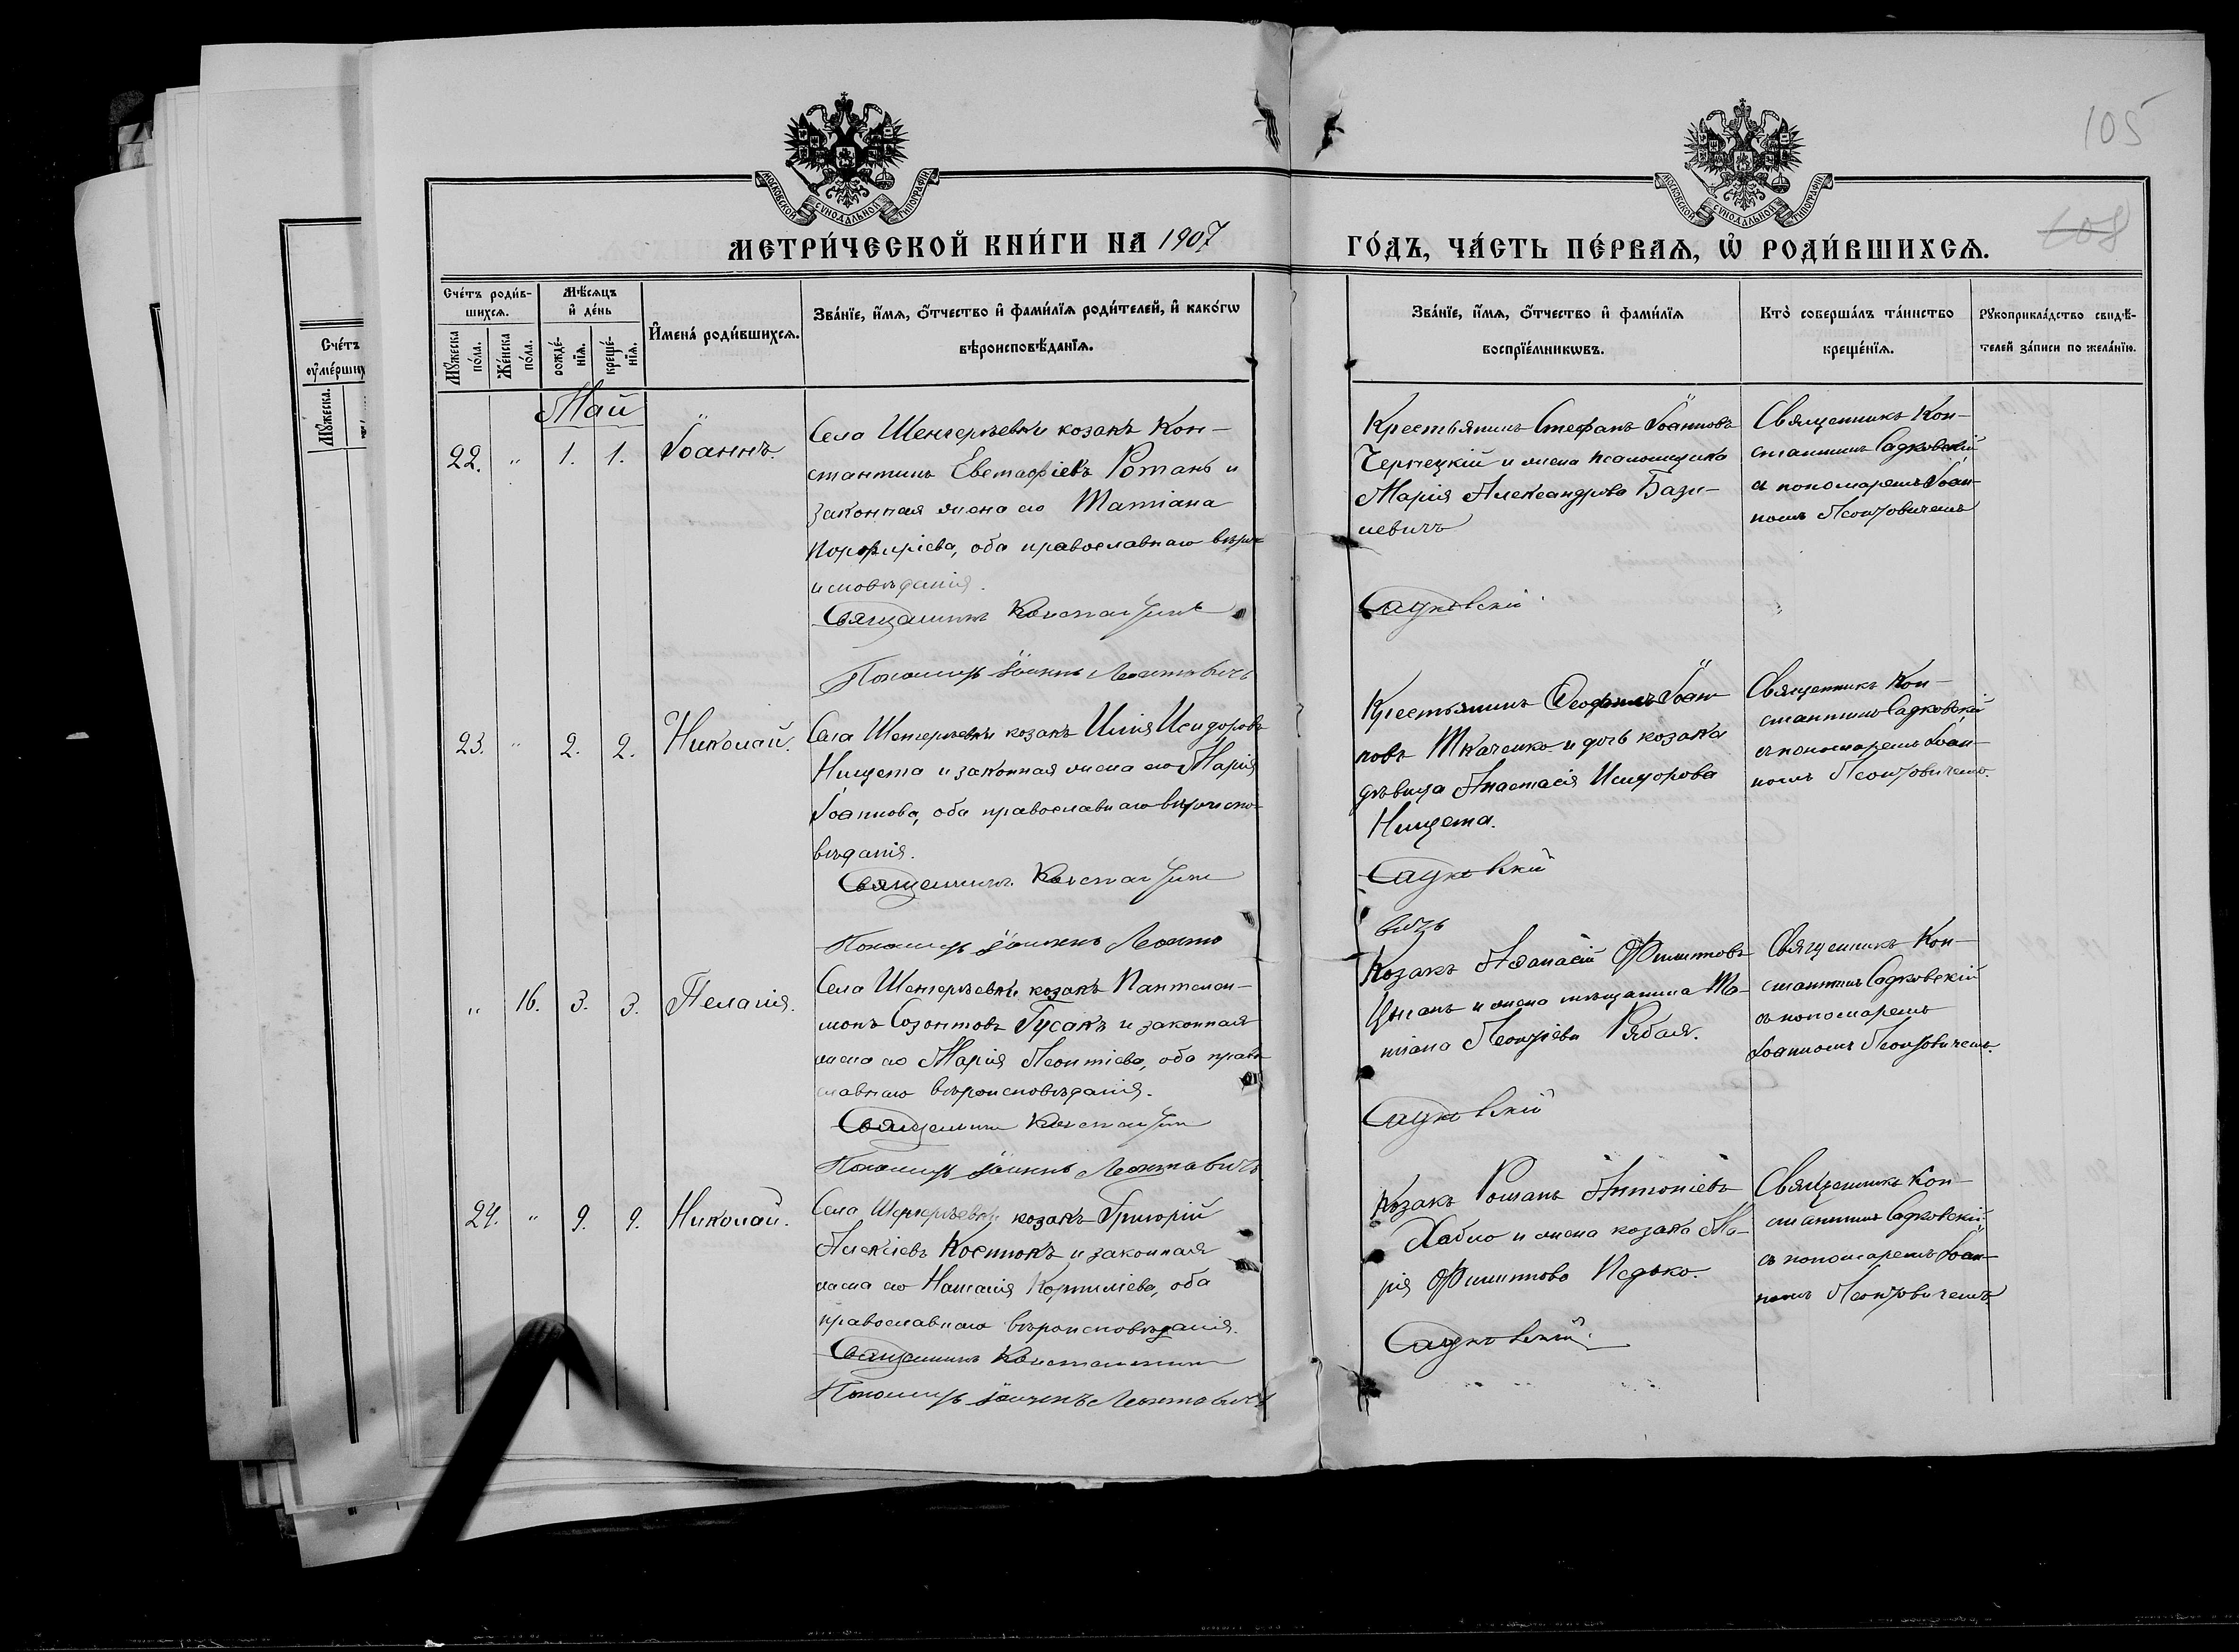 105
108
МОСКОВСКОЙ СѴНОДАЛЬНОЙ ТИПОГРАФІИ
МОСКОВСКОЙ СѴНОДАЛЬНОЙ ТИПОГРАФІИ
МЕТРИ́ЧЕСКОЙ КНИ́ГИ НА 1907 ГО́ДЪ, ЧА́СТЬ ПЕ́РВАѦ, Ѽ РОДИ́ВШИХСѦ.
Сче́тъ роди́в-
шихсѧ.
Мꙋ́жеска
по́ла.
Же́нска
по́ла.
Мѣ́сѧцъ
и҆ де́нь
рожде́-
нїѧ.
креще́-
нїѧ.
И҆мена̀ роди́вшихсѧ.
Зва́нїе, и҆́мѧ, ѻ҆́тчество и҆ фами́лїѧ роди́телей, и҆ како́гѡ
вѣроисповѣ́данїѧ.
Зва́нїе, и҆́мѧ, ѻ҆́тчество и҆ фами́лїѧ
воспрїе́мникѡвъ.
Кто̀ соверша́лъ та́инство
креще́нїѧ.
Рꙋкоприкла́дство свидѣ́-
телей за́писи по жела́нїю.
Сче́тъ
ᲂу҆ме́рших
Мꙋ́жеска.
Май
22. " 1. 1. Іоаннъ.
Села Шенгеріевки козакъ Кон-
стантинъ Евстафіевъ Ротань и
законная жена его Татіана
Порфиріева, оба православнаго вѣро-
исповѣданія.
Священникъ Константинъ
Пономарь Іоаннъ Леонтовичъ
Крестьянинъ Стефанъ Іоанновъ
Чернецкій и жена псаломщика
Марія Александрова Бази-
левичъ
Садковскій
Священникъ Кон-
стантинъ Садковскій
съ пономаремъ Іоан-
номъ Леонтовичемъ
23. " 2. 2. Николай.
Села Шенгеріевки козакъ Илія Исидоровъ
Нищета и законная жена его Марія
Іоаннова, оба православнаго вѣроиспо-
вѣданія.
Священникъ Константинъ
Пономарь Іоаннъ Леонто
Крестьянинъ Іоан
новъ Ткаченко и дочь козака
дѣвица Анастасія Исидорова
Нищета.
Садковскій
вичъ
Священникъ Кон-
стантинъ Садковскій
съ пономаремъ Іоан-
номъ Леонтовичемъ.
" 16. 3. 3. Пелагія.
Села Шенгеріевки козакъ Пантелеи-
монъ Созонтовъ Гусакъ и законная
жена его Марія Леонтіева, оба право
славнаго вѣроисповѣданія.
Священникъ Константинъ
Пономарь Іоаннъ Леонтовичъ
Козакъ Аѳанасій Филипповъ
Цыганъ и жена мѣщанина Та-
тіана Леонтіева Рябая.
Садковскій
Священникъ Кон-
стантинъ Садковскій
съ пономаремъ
Іоанномъ Леонтовичемъ.
24. " 9. 9. Николай.
Села Шенгеріевки козакъ Григорій
Алексіевъ Костюкъ и законная
жена его Наталія Корниліева, оба
православнаго вѣроисповѣданія.
Священникъ Константинъ
Пономарь Іоаннъ Леонтовичъ
Козакъ Романъ Антоніевъ
Хабло и жена козака Ма-
рія Филиппова Педько.
Садковскій
Священникъ Кон-
стантинъ Садковскій,
съ пономаремъ Іоан-
номъ Леонтовичемъ.